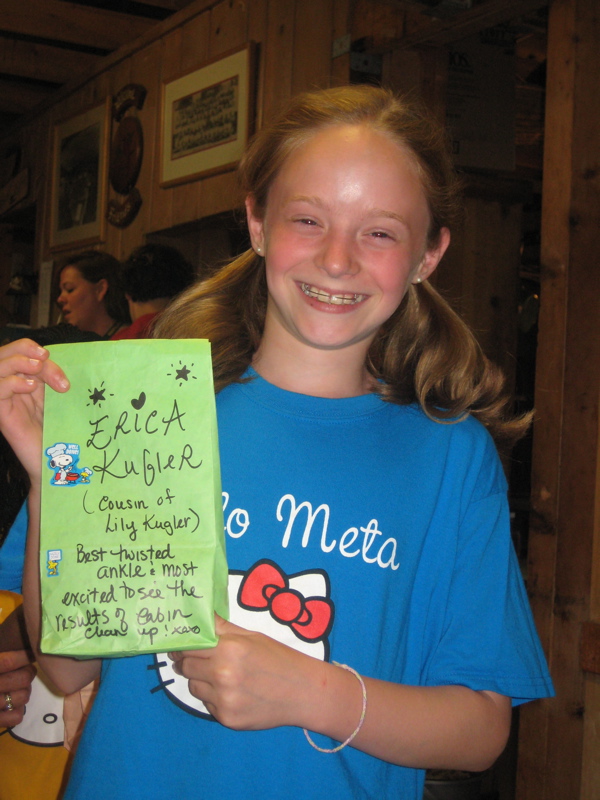 ERICA
KUGLER
(Cousin of
Lily Kugler)
Best twisted
ankle & most
excited to see the
results of Cabin
clean up! xoxo
lo Meta